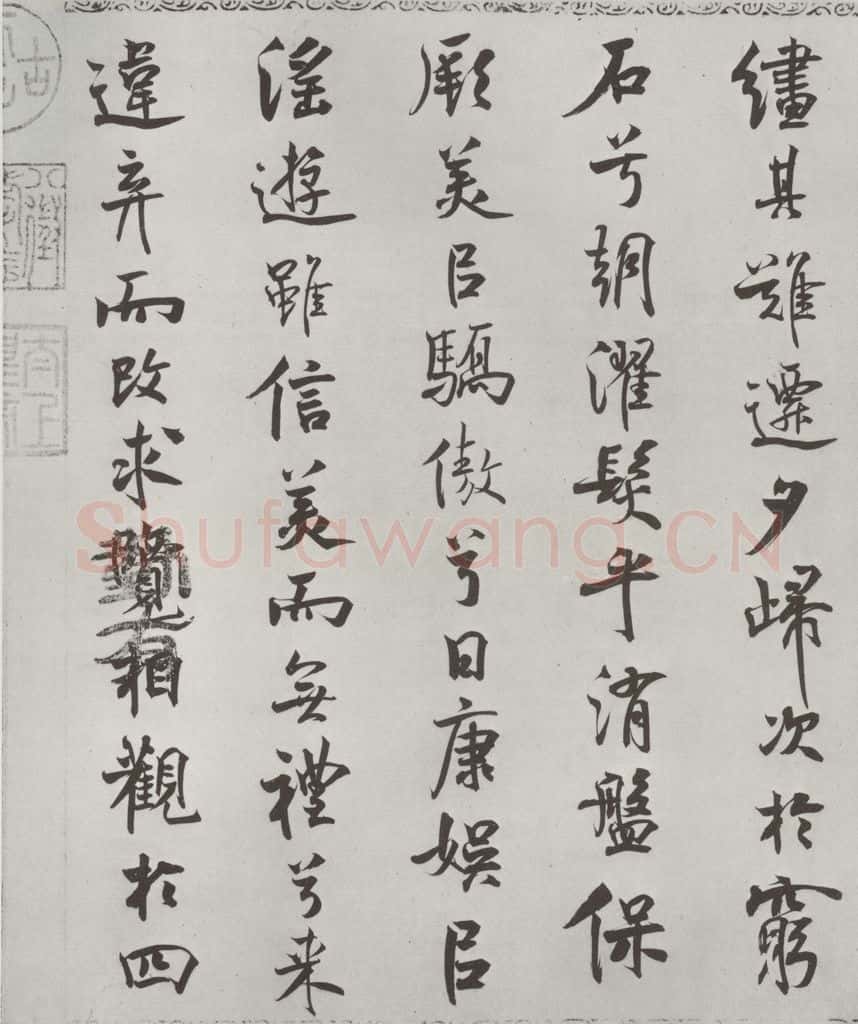 繣其難遷夕歸次於窮
石兮朝濯髮乎洧盤保
厥美㠯驕傲兮日康娛㠯
滛遊雖信美而無禮兮来
違弃而改求覽相觀於四
Shufawang.CN